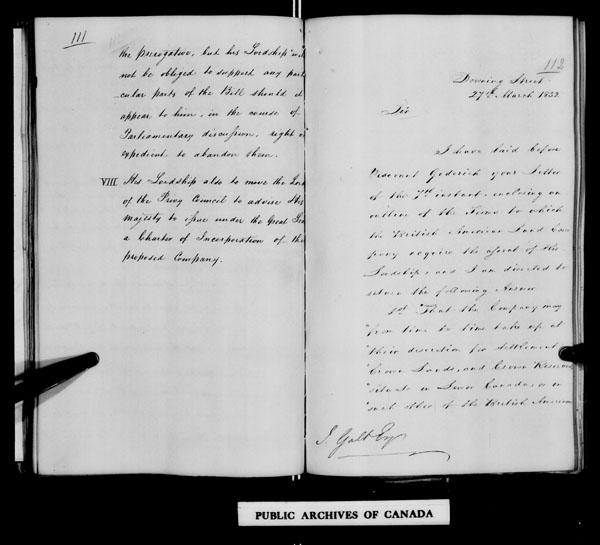 111
the prerogative, but his Lordship will
not be obliged to support any parti
cular parts of the Bill should it
appear to him, in the course of
Parliamentary discussion, right or
expedient to abandon them.
VIII His Lordship also to move the Lords
of the Privy Council to advise His
Majesty to issue under the Great Seal
a Charter of Incorporation of the
proposed Company.
112
Downing Street
27th March 1832.
Sir
I have laid before
Viscount Goderich your Letter
of the 7th instant, enclosing an
outline of the Terms to which
the British American Land Com
pany require the assent of His
Lordship, and I am directed to
return the following Answer
1st "That the Company may
"from time to time take up at
"their discretion for settlement
"Crown Lands, and Crown Reserves
"situate in Lower Canada, or in
"such other of the British American
J. Galt Esqr
PUBLIC ARCHIVES OF CANADA